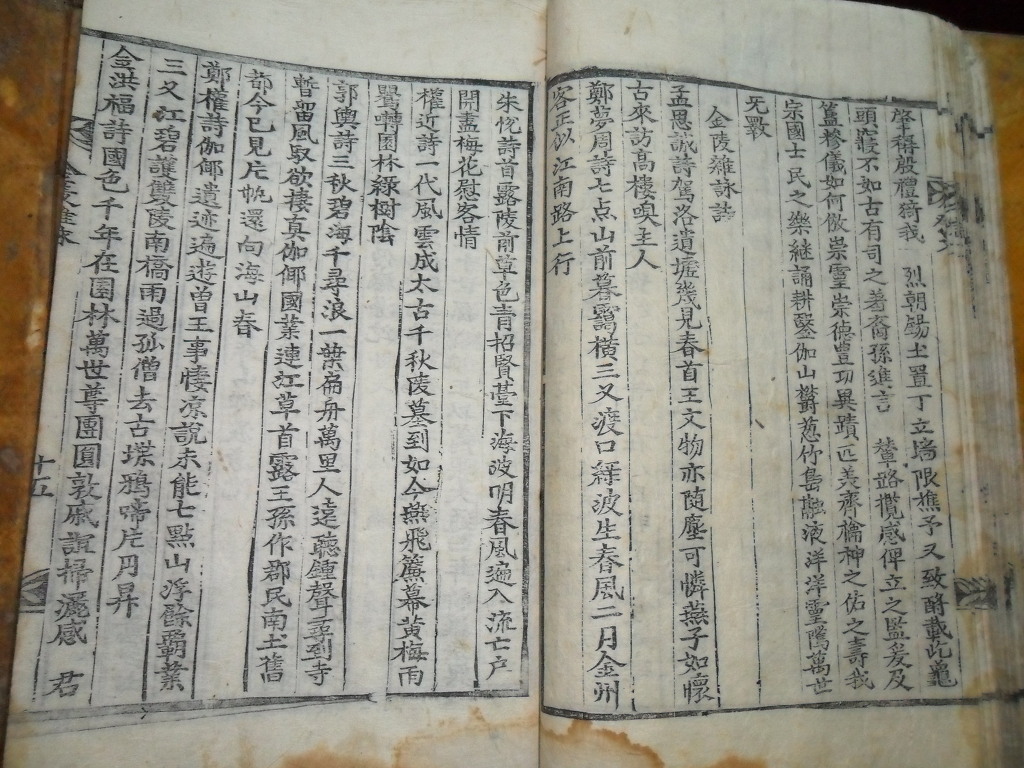 肇稱殷禮猗我　烈朝錫土置丁立墻限樵予又致酹載此龜
頭竅不如古有司之著裔孫進言　蹕路攬感俾立之監爰及
簠簋儀如何倣崇靈崇德豊功異蹟匹美齊檜神之佑之壽我
宗國士民之樂継誦耕鑿伽山欝葱竹島融液洋洋靈隲萬世
无斁
金陵雜詠詩
孟思誠詩駕洛遺墟幾見春首王文物亦随塵可憐燕子如懷
古來訪高樓喚主人
鄭夢周詩七点山前暮靄橫三叉渡口緑波生春風二月金州
客正似江南路上行
朱悅詩首露陵前草色青招賢䑓下海波明春風遍入流亡戶
開盡梅花慰客情
權近詩一代風雲成太古千秋陵墓到如今燕飛簾幕黃梅雨
鶯囀園林綠樹陰
郭輿詩三秋碧海千尋浪一葉扁舟萬里人遠聽鍾聲尋到寺
暫留風馭欲棲真伽倻國業連江草首露王孫作郡民南土舊
都今已見片帆還向海山春
鄭權詩伽倻遺迹遍遊曽王事悽凉說未能七點山浮餘霸業
三叉江碧護雙陵南橋雨過孤僧去古塔鴉啼片月昇
金洪福詩國色千年在園林萬世尊團圓敦戚誼掃灑感　君
十五